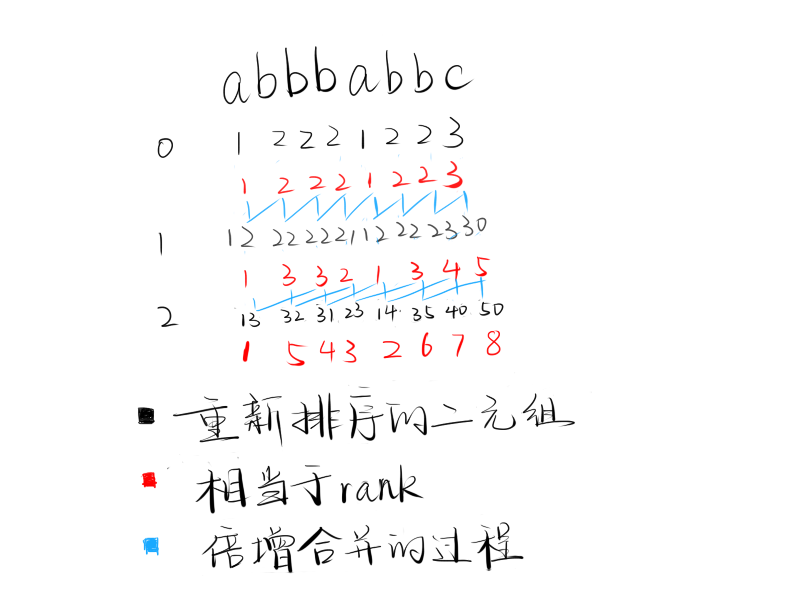 abbbabbc
0 1 2 2 2 1 2 2 3
1 2 2 2 1 2 2 3
1 12 22 22 21 12 22 23 30
1 3 3 2 1 3 4 5
2 13 32 31 23 14 35 40 50
1 5 4 3 2 6 7 8
重新排序的二元组
相当于rank
倍增合并的过程